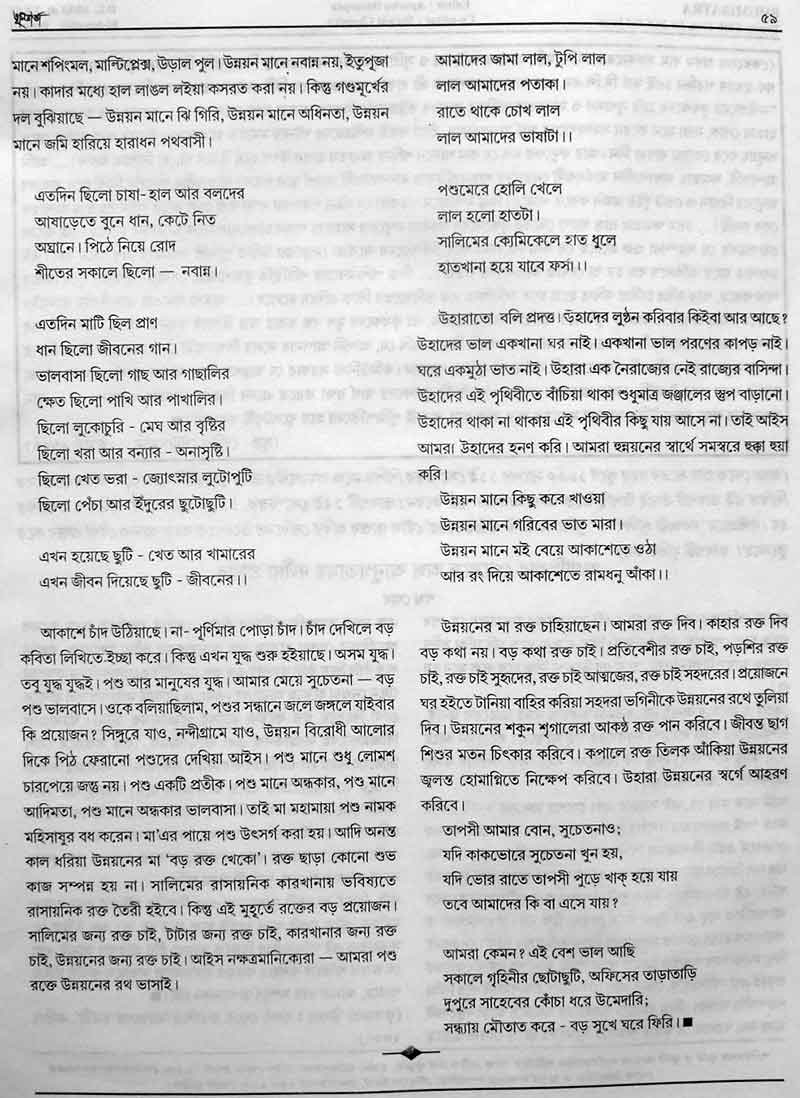 ৫৯
মানে শপিংমল, মাল্টিপ্লেক্স, উড়াল পুল। উন্নয়ন মানে নবান্ন নয়, ইতুপূজা
নয়। কাদার মধ্যে হাল লাঙল লইয়া কসরত করা নয়। কিন্তু গণ্ডমূর্খের
দল বুঝিয়াছে — উন্নয়ন মানে ঝি গিরি, উন্নয়ন মানে অধিনতা, উন্নয়ন
মানে জমি হারিয়ে হারাধন পথবাসী।
এতদিন ছিলো চাষা- হাল আর বলদের
আষাড়েতে বুনে ধান, কেটে নিত
অঘ্রানে। পিঠে নিয়ে রোদ
শীতের সকালে ছিলো — নবান্ন।
এতদিন মাটি ছিল প্রাণ
ধান ছিলো জীবনের গান।
ভালবাসা ছিলো গাছ আর গাছালির
ক্ষেত ছিলো পাখি আর পাখালির।
ছিলো লুকোচুরি - মেঘ আর বৃষ্টির
ছিলো খরা আর বন্যার - অনাসৃষ্টি।
ছিলো খেত ভরা - জ্যোৎস্নার লুটোপুটি
ছিলো পেঁচা আর ইঁদুরের ছুটোছুটি।
এখন হয়েছে ছুটি - খেত আর খামারের
এখন জীবন দিয়েছে ছুটি - জীবনের।।
আকাশে চাঁদ উঠিয়াছে। না- পূর্ণিমার পোড়া চাঁদ। চাঁদ দেখিলে বড়
কবিতা লিখিতে ইচ্ছা করে। কিন্তু এখন যুদ্ধ শুরু হইয়াছে। অসম যুদ্ধ।
তবু যুদ্ধ যুদ্ধই। পশু আর মানুষের যুদ্ধ। আমার মেয়ে সুচেতনা — বড়
পশু ভালবাসে। ওকে বলিয়াছিলাম, পশুর সন্ধানে জলে জঙ্গলে যাইবার
কি প্রয়োজন? সিঙ্গুরে যাও, নন্দীগ্রামে যাও, উন্নয়ন বিরোধী আলোর
দিকে পিঠ ফেরানো পশুদের দেখিয়া আইস। পশু মানে শুধু লোমশ
চারপেয়ে জন্তু নয়। পশু একটি প্রতীক। পশু মানে অন্ধকার, পশু মানে
আদিমতা, পশু মানে অন্ধকার ভালবাসা। তাই মা মহামায়া পশু নামক
মহিসাষুর বধ করেন। মা'এর পায়ে পশু উৎসর্গ করা হয়। আদি অনন্ত
কাল ধরিয়া উন্নয়নের মা ‘বড় রক্ত খেকো’। রক্ত ছাড়া কোনো শুভ
কাজ সম্পন্ন হয় না। সালিমের রাসায়নিক কারখানায় ভবিষ্যতে
রাসায়নিক রক্ত তৈরী হইবে। কিন্তু এই মুহূর্তে রক্তের বড় প্রয়োজন।
সালিমের জন্য রক্ত চাই, টাটার জন্য রক্ত চাই, কারখানার জন্য রক্ত
চাই, উন্নয়নের জন্য রক্ত চাই। আইস নক্ষত্রমানিক্যেরা — আমরা পশু
রক্তে উন্নয়নের রথ ভাসাই।
আমাদের জামা লাল, টুপি লাল
লাল আমাদের পতাকা।
রাতে থাকে চোখ লাল
লাল আমাদের ভাষাটা।।
পশুমেরে হোলি খেলে
লাল হলো হাতটা।
সালিমের ক্যেমিকেলে হাত ধুলে
হাতখানা হয়ে যাবে ফর্সা।।
উহারাতো বলি প্রদত্ত। উহাদের লুণ্ঠন করিবার কিইবা আর আছে?
উহাদের ভাল একখানা ঘর নাই। একখানা ভাল পরণের কাপড় নাই।
ঘরে একমুঠা ভাত নাই। উহারা এক নৈরাজ্যের নেই রাজ্যের বাসিন্দা।
উহাদের এই পৃথিবীতে বাঁচিয়া থাকা শুধুমাত্র জঞ্জালের স্তুপ বাড়ানো।
উহাদের থাকা না থাকায় এই পৃথিবীর কিছু যায় আসে না। তাই আইস
আমরা উহাদের হনণ করি। আমরা হুন্নয়নের স্বার্থে সমস্বরে হুক্কা হুয়া
করি।
উন্নয়ন মানে কিছু করে খাওয়া
উন্নয়ন মানে গরিবের ভাত মারা।
উন্নয়ন মানে মই বেয়ে আকাশেতে ওঠা
আর রং দিয়ে আকাশেতে রামধনু আঁকা।।
উন্নয়নের মা রক্ত চাহিয়াছেন। আমরা রক্ত দিব। কাহার রক্ত দিব
বড় কথা নয়। বড় কথা রক্ত চাই। প্রতিবেশীর রক্ত চাই, পড়শির রক্ত
চাই, রক্ত চাই সুহৃদের, রক্ত চাই আত্মজের, রক্ত চাই সহদরের। প্রয়োজনে
ঘর হইতে টানিয়া বাহির করিয়া সহদরা ভগিনীকে উন্নয়নের রথে তুলিয়া
দিব। উন্নয়নের শকুন শৃগালেরা আকণ্ঠ রক্ত পান করিবে। জীবন্ত ছাগ
শিশুর মতন চিৎকার করিবে। কপালে রক্ত তিলক আঁকিয়া উন্নয়নের
জ্বলন্ত হোমাগ্নিতে নিক্ষেপ করিবে। উহারা উন্নয়নের স্বর্গে আহরণ
করিবে।
তাপসী আমার বোন, সুচেতনাও;
যদি কাকভোরে সুচেতনা খুন হয়,
যদি ভোর রাতে তাপসী পুড়ে খাক্ হয়ে যায়
তবে আমাদের কি বা এসে যায়?
আমরা কেমন? এই বেশ ভাল আছি
সকালে গৃহিনীর ছোটাছুটি, অফিসের তাড়াতাড়ি
দুপুরে সাহেবের কোঁচা ধরে উমেদারি;
সন্ধ্যায় মৌতাত করে - বড় সুখে ঘরে ফিরি।